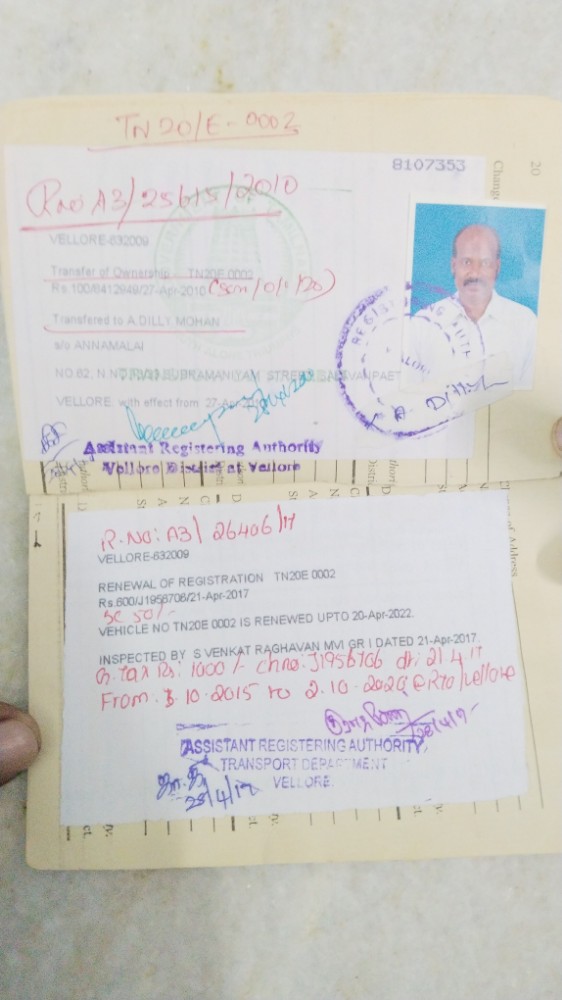 TN20/E-0002
20
8107353
R.no A3/25615/2010
VELLORE-632009
Transfer of Ownership TN20E 0002
Rs.100/8412949/27-Apr-2010
Transferred to A.DILLY MOHAN
s/o ANNAMALAI
NO.62, N.
SUBRAMANIYAM STREET
VELLORE with effect from 27-Apr-
Assistant Registering Authority
Vellore District at Vellore
of Address
R.NO: A3/ 26406/17
VELLORE-632009
RENEWAL OF REGISTRATION TN20E 0002
Rs.600/J1956706/21-Apr-2017
SC 50/-
VEHICLE NO TN20E 0002 IS RENEWED UPTO 20-Apr-2022.
INSPECTED BY S VENKAT RAGHAVAN MVI GR I DATED 21-Apr-2017.
G.Tax Rs: 1000/- ch no: J1956706 dt: 21 4 17
From 3.10.2015 to 2.10.2020 @ RTO/vellore
ASSISTANT REGISTERING AUTHORITY,
TRANSPORT DEPARTMENT
VELLORE.